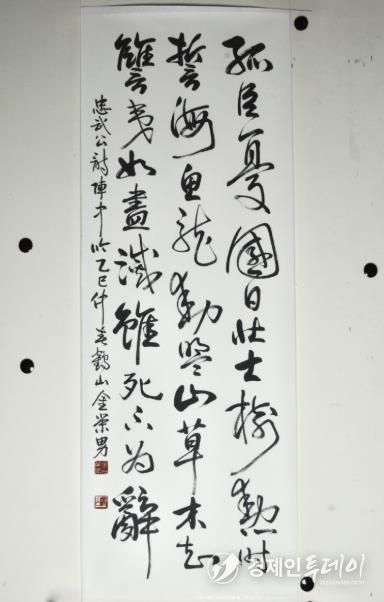 孤臣憂國日壯士樹勳時
誓海魚龍動盟山草木知
讐夷如盡滅雖死不為辭
忠武公詩陣中吟乙巳仲春鶴山金榮男
경제인투데이